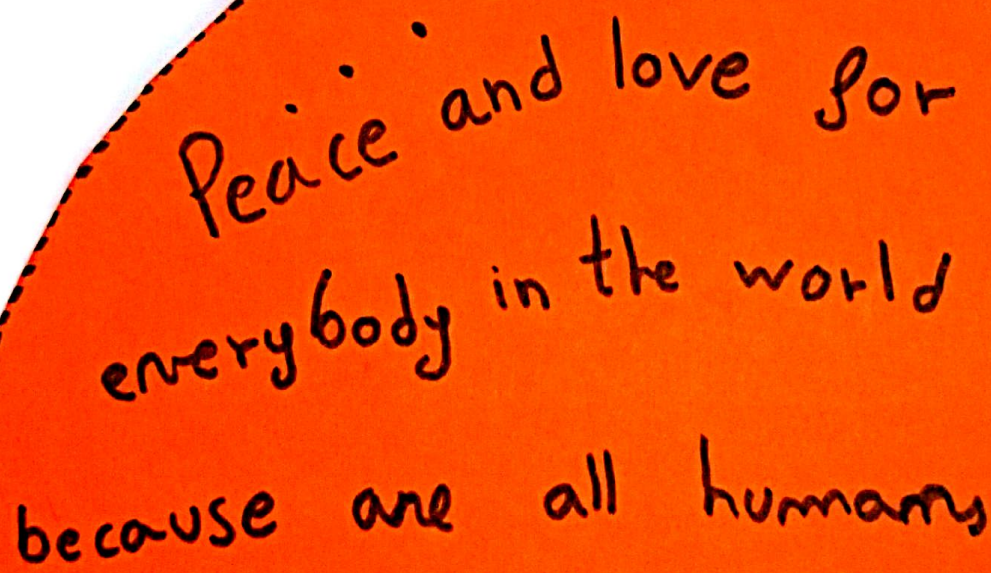 Peace and love for
everybody in the world
because are all humans